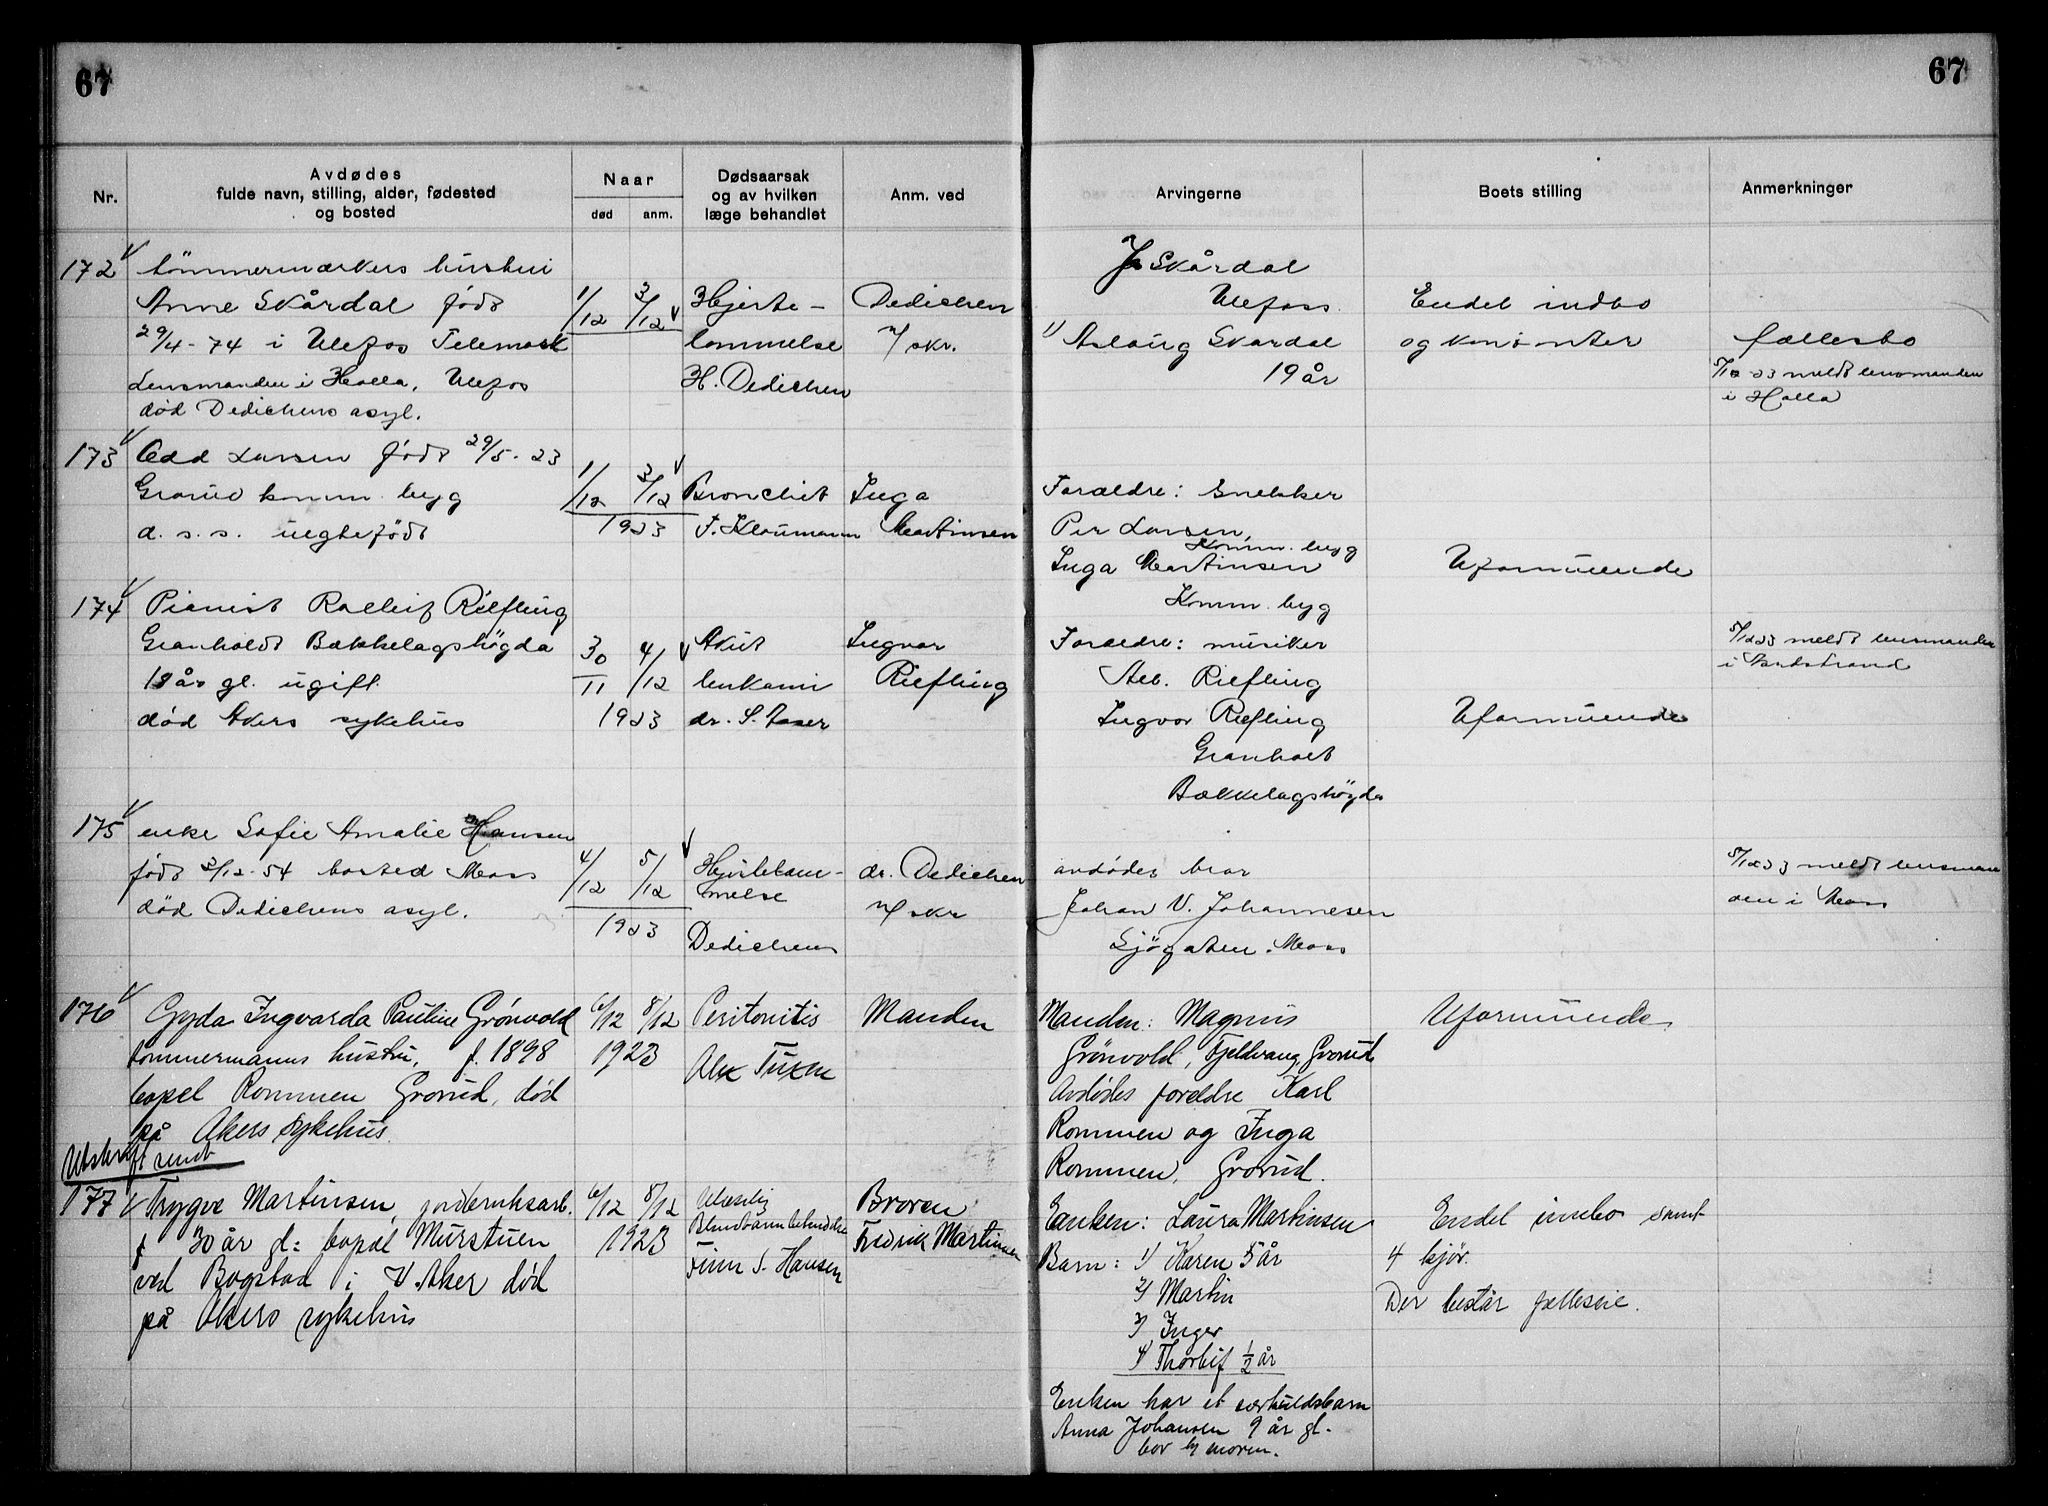 67
67
Nr.
Avdødes
fulde navn, stilling, alder, fødested
og bosted
Naar
død
anm.
Dødsaarsak
og av hvilken
læge behandlet
Anm. ved
Arvingerne
Boets stilling
Anmerkninger
172
tømmermerkers hustru
Anne Skårdal født
29/4-74 i Ulefos Telemark
Lensmanden i Holla, Ulefos
død Dedichens asyl.
1/12
3/12
Hjerte-
lammelse
H. Dedichen
Dedichen
v/ skr.
Skårdal
Ulefoss
1) Aslaug Skardal
19 år
Endel indbo
og kontanter
fællesbo
5/12 23 meldt lensmanden
i Holla
173
Odd Larsen født 29/5-23
Grorud komm. byg
d. s. s. uegtefødt
1/12
3/12
1923
Bronchit
F. Kloumann
Inga
Martinsen
Forældre: Snekker
Per Larsen,
Komm. byg
Inga Martinsen
Komm. byg
Uformuende
174
Pianist Rolleif Riefling
Granholdt Bækkelagshøgda
18 år gl. ugift.
død Akers sykehus
30/11
4/12
1923
Akut
leukæmi
dr. S. Laser
Ingvar
Riefling
Forældre: musiker
Alb. Riefling
Ingvor Riefling
Granholt
Bækkelagshøgda
Uformuende
5/12 23 meldt lensmanden
i Nordstrand
175
enke Sofie Amalie Hansen
født 2/12-54 bosted Moss
død Dedichens asyl.
4/12
5/12
1923
Hjertelam-
melse
Dedichens
dr. Dedichen
v/ skr
avdødes bror
Johan V. Johannesen
Sjøgaten. Moss
5/12 23 meldt lensman
den i Moss
176
Gyda Ingvarda Pauline Grønvold
tømmermanns hustru, f. 1898
bopel Rommen Grorud, død
på Akers sykehus.
6/12
8/12
1923
Peritonitis
Alex Tuxen
Manden
Manden: Magnus
Grønvold, Fjeldvang, Grorud
Avdødes foreldre Karl
Rommen og Inga
Rommen, Grorud.
Uformuende
Utskrift sendt
177
Trygve Martinsen, jordbruksarb.
f 30 år gl: bopæl Murstuen
ved Bogstad i V. Aker død
på Akers sykehus
6/12
8/12
1923
Blindtarmbetendelse
Finn S. Hansen
Broren
Fredrik Martinsen
Enken: Laura Martinsen
Barn: 1) Karen 5 år
2) Martin
3) Inger
4) Thorleif ½ år
Enken har et særkuldsbarn
Anna Johansen 9 år gl.
bor hos moren.
Endel innbo samt
4 kjør.
Der består felleseie.